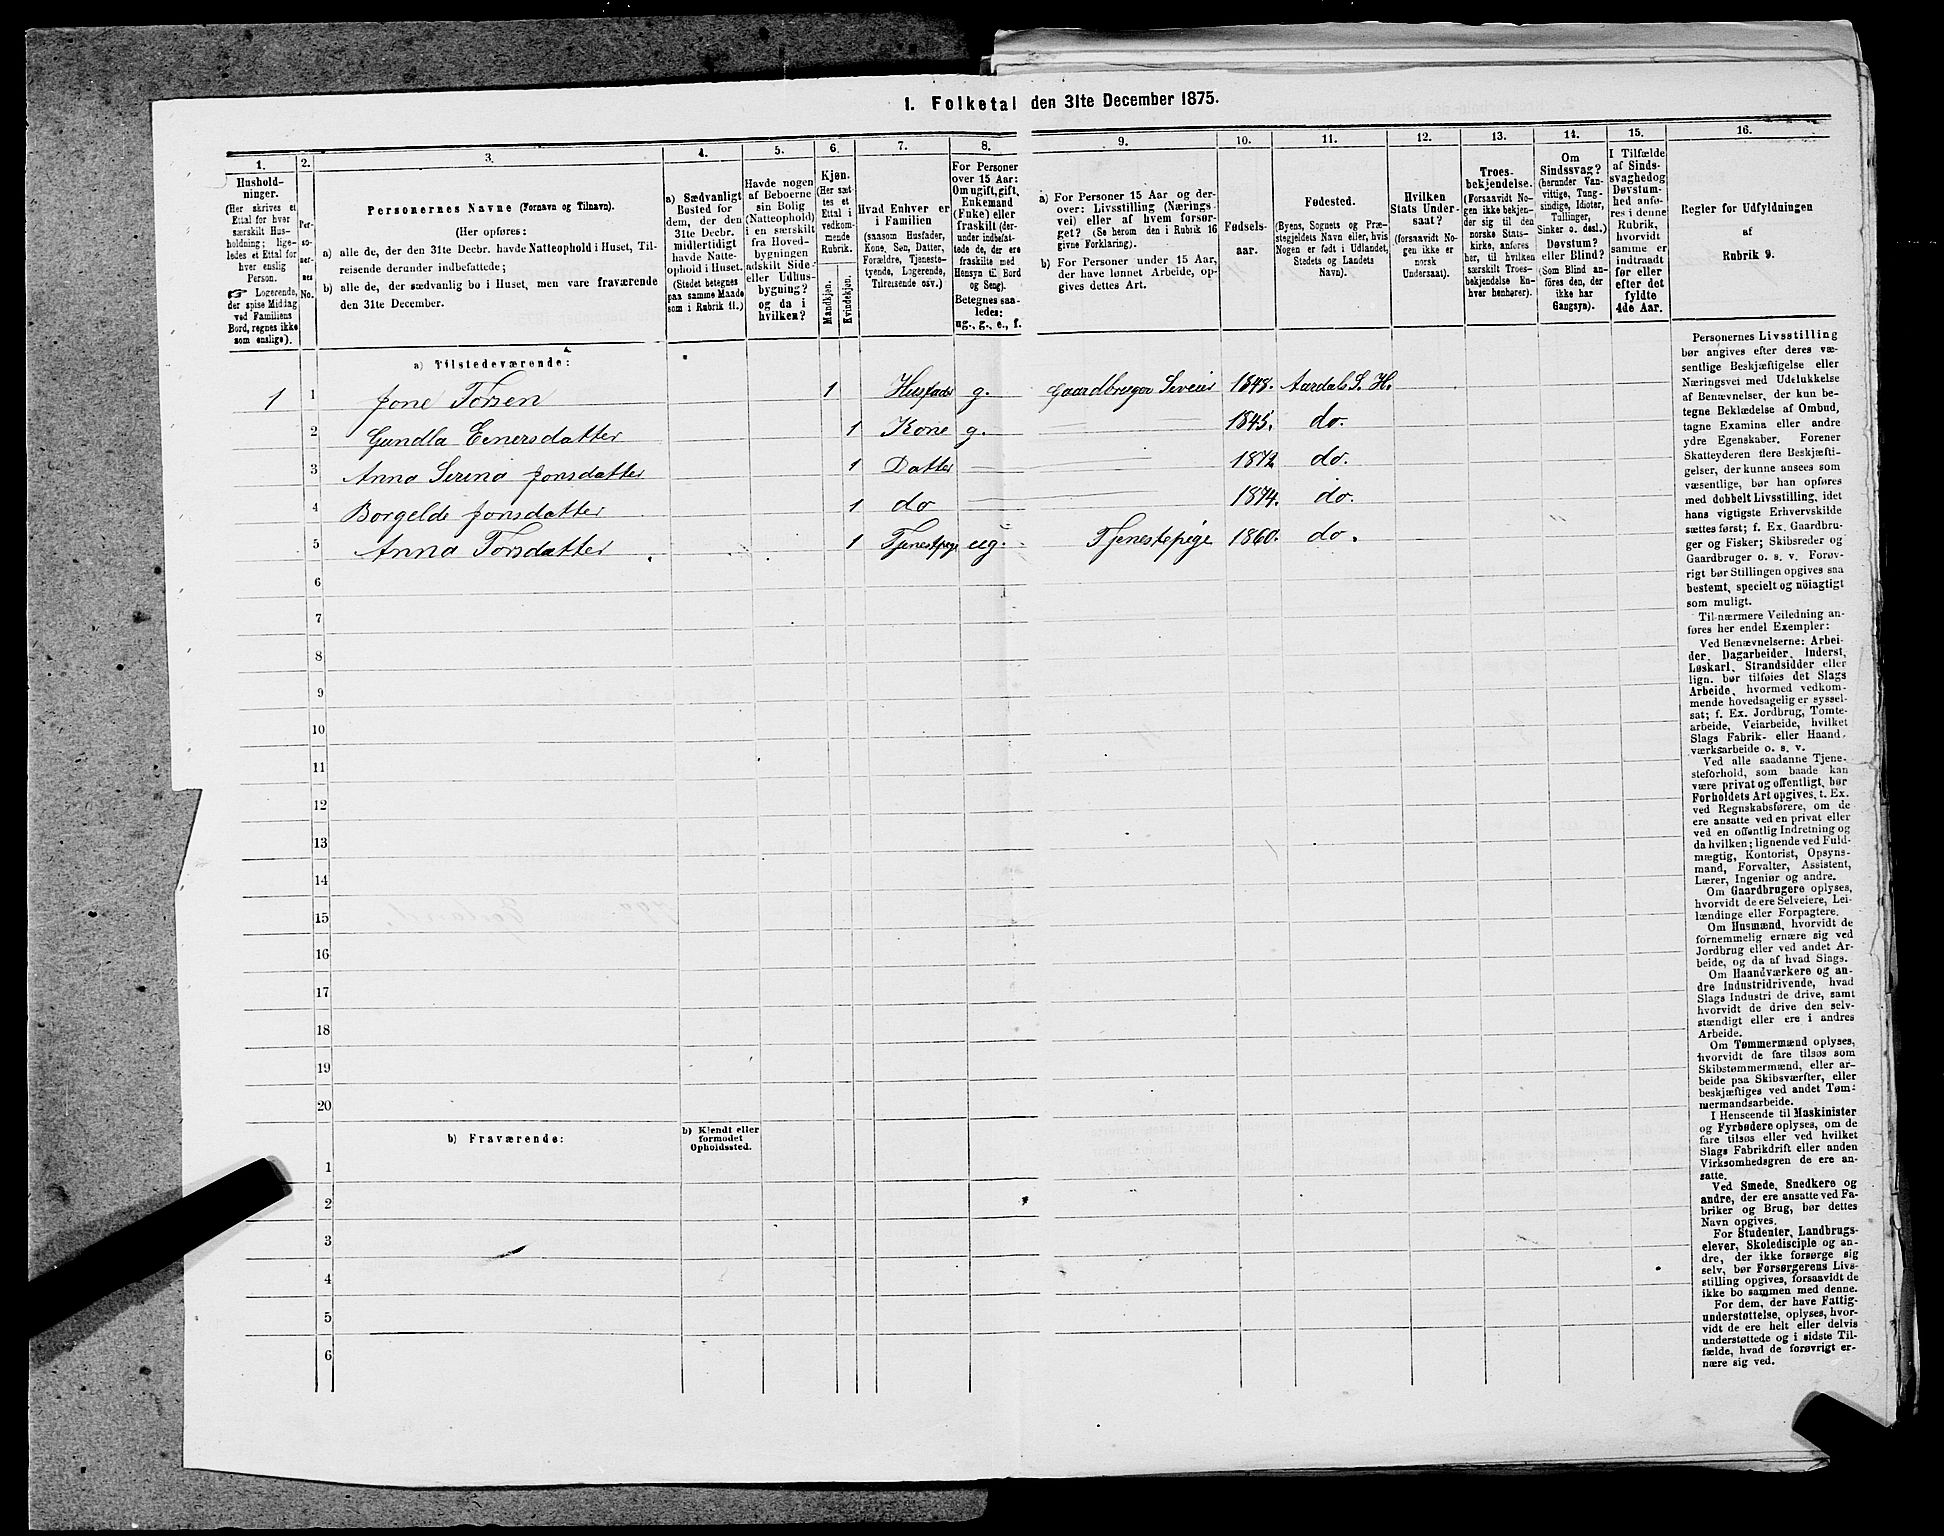 1. Folketal den 31te December 1875.
1.
2.
3.
4.
5.
6.
7.
8.
9.
10.
11.
12.
13.
14.
15.
16.
Husholdninger.
(Her skrives et
Ettal for hver
særskilt Husholdning;
ligeledes et Ettal for
hver enslig
Person.
☞ Logerende,
der spise Middag
ved Familiens
Bord, regnes ikke
som enslige).
Personernes No.
Personernes Navne (Fornavn og Tilnavn).
(Her opføres:
a) alle de, der den 31te Decbr. havde Natteophold i Huset, Tilreisende derunder indbefattede;
b) alle de, der sædvanlig bo i Huset, men vare fraværende
den 31te December.
a) Sædvanligt
Bosted for
dem, der den
31te Decbr.
midlertidigt
havde Natteophold i Huset.
(Stedet betegnes
paa samme Maade
som i Rubrik 11.)
Havde nogen
af Beboerne
sin Bolig
(Natteophold)
i en særskilt
fra Hovedbygningen
adskilt Side-
eller Udhusbygning?
og da i
hvilken?
Kjøn.
(Her sættes et
Ettal i
vedkommende
Rubrik.
Mandkjøn.
Kvindekjøn.
Hvad Enhver er
i Familien
(saasom Husfader,
Kone, Søn, Datter,
Forældre, Tjenestetyende, Logerende,
Tilreisende osv.)
For Personer
over 15 Aar:
Om ugift, gift,
Enkemand
(Enke) eller
fraskilt (derunder indbefattede de, der ere
fraskilte med
Hensyn til Bord
og Seng).
Betegnes saaledes:
ug., g., e., f.
a) For Personer 15 Aar og derover: Livsstilling (Næringsvei) eller af hvem forsørget? (Se herom den i Rubrik 16
givne Forklaring).
b) For Personer under 15 Aar,
der have lønnet Arbeide, opgives dettes Art.
Fødselsaar.
Fødested.
(Byens, Sognets og Præstegjeldets Navn eller, hvis
Nogen er født i Udlandet,
Stedets og Landets
Navn).
Hvilken
Stats Undersaat?
(forsaavidt Nogen ikke er
norsk
Undersaat).
Troesbekjendelse.
(Forsaavidt Nogen ikke bekjender sig til den
norske Statskirke, anføres
her, til hvilken
særskilt Troesbekjendelse Enhver henhører).
Om
Sindssvag?
(herunder Vanvittige, Tungsindige, Idioter,
Tullinger,
Sinker o. desl.)
Døvstum?
eller Blind?
(Som Blind anføres den, der
ikke har
Gangsyn).
I Tilfælde
af Sindssvaghed og
Døvstumhed anføres i denne
Rubrik,
hvorvidt
samme er
indtraadt
før eller
efter det
fyldte
4de Aar.
Regler for Udfyldningen
af
Rubrik 9.
a) Tilstedeværende:
1 1 Jone Torsen 1 Husfader g. Gaardbruger Selveier 1848. Aardals S. H.
2 Gundla Einersdatter 1 Kone g. 1845. do.
3 Anna Serina Jonsdatter 1 Datter 1872 do.
4 Borgelde Jonsdatter 1 do 1874. do.
5 Anna Torsdatter 1 Tjenestpige ug. Tjenestepige 1860. do.
6
7
8
9
10
11
12
13
14
15
16
17
18
19
20
b) Fraværende:
b) Kjendt eller
formodet
Opholdssted.
1
2
3
4
5
6
Personernes Livsstilling
bør angives efter deres væsentlige Beskjæftigelse eller
Næringsvei med Udelukkelse
af Benævnelser, der kun betegne Beklædelse af Ombud,
tagne Examina eller andre
ydre Egenskaber. Forener
Skatteyderen flere Beskjæftigelser, der kunne ansees som
væsentlige, bør han opføres
med dobbelt Livsstilling, idet
hans vigtigste Erhvervskilde
sættes først; f. Ex. Gaardbruger og Fisker; Skibsreder og
Gaardbruger o. s. v. Forøvrigt bør Stillingen opgives saa
bestemt, specielt og nöiagtigt
som muligt.
Til nærmere Veiledning anføres her endel Exempler:
Ved Benævnelserne: Arbeider, Dagarbeider, Inderst,
Løskarl, Strandsidder eller
lign. bør tilføies det Slags
Arbeide, hvormed vedkommende hovedsagelig er sysselsat; f. Ex. Jordbrug, Tomtearbeide, Veiarbeide, hvilket
Slags Fabrik- eller Haandværksarbeide o. s. v.
Ved alle saadanne Tjenesteforhold, som baade kan
være privat og offentligt, bør
Forholdets Art opgives, t. Ex.
ved Regnskabsførere, om de
ere ansatte ved en privat eller
ved en offentlig Indretning og
da hvilken; lignende ved Fuldmægtig, Kontorist, Opsynsmand, Forvalter, Assistent,
Lærer, Ingeniør og andre.
Om Gaardbrugere oplyses,
hvorvidt de ere Selveiere, Leilændinge eller Forpagtere.
Om Husmænd, hvorvidt de
fornemmelig ernære sig ved
Jordbrug eller ved andet Arbeide, og da af hvad Slags.
Om Haandværkere og andre Industridrivende, hvad
Slags Industri de drive, samt
hvorvidt de drive den selvstændigt eller ere i andres
Arbeide.
Om Tømmermænd oplyses,
hvorvidt de fare tilsøs som
Skibstømmermænd, eller arbeide paa Skibsværfter, eller
beskjæftiges ved andet Tømmermandsarbeide.
I Henseende til Maskinister
og Fyrbødere oplyses, om de
fare tilsøs eller ved hvilket
Slags Fabrikdrift eller anden
Virksomhedsgren de ere ansatte.
Ved Smede, Snedkere og
andre, der ere ansatte ved Fabriker og Brug, bør dettes
Navn opgives.
For Studenter, Landbrugselever, Skoledisciple og andre, der ikke forsørge sig
selv, bør Forsørgerens Livsstilling opgives, forsaavidt de
ikke bo sammen med denne.
For dem, der have Fattigunderstøttelse, oplyses, hvorvidt de ere helt eller delvis
understøttede og i sidste Tilfælde, hvad de forøvrigt ernære sig ved.